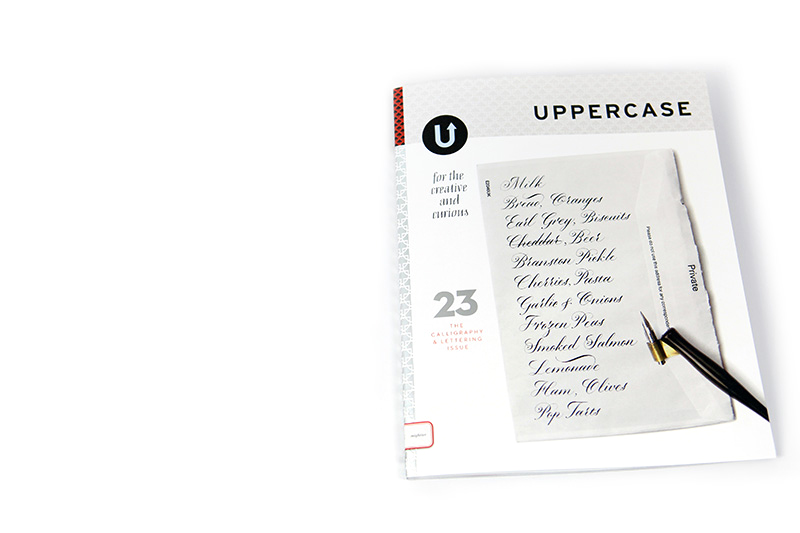 UPPERCASE
U
for the
creative
and
curious
23
THE
CALLIGRAPHY
& LETTERING
ISSUE
Milk
Bread, Oranges
Earl Grey, Biscuits
Cheddar, Beer
Branston Pickle
Cherries, Pasta
Garlic & Onions
Frozen Peas
Smoked Salmon
Lemonade
Ham, Olives
Pop Tarts
Please do not use this address for any
Private